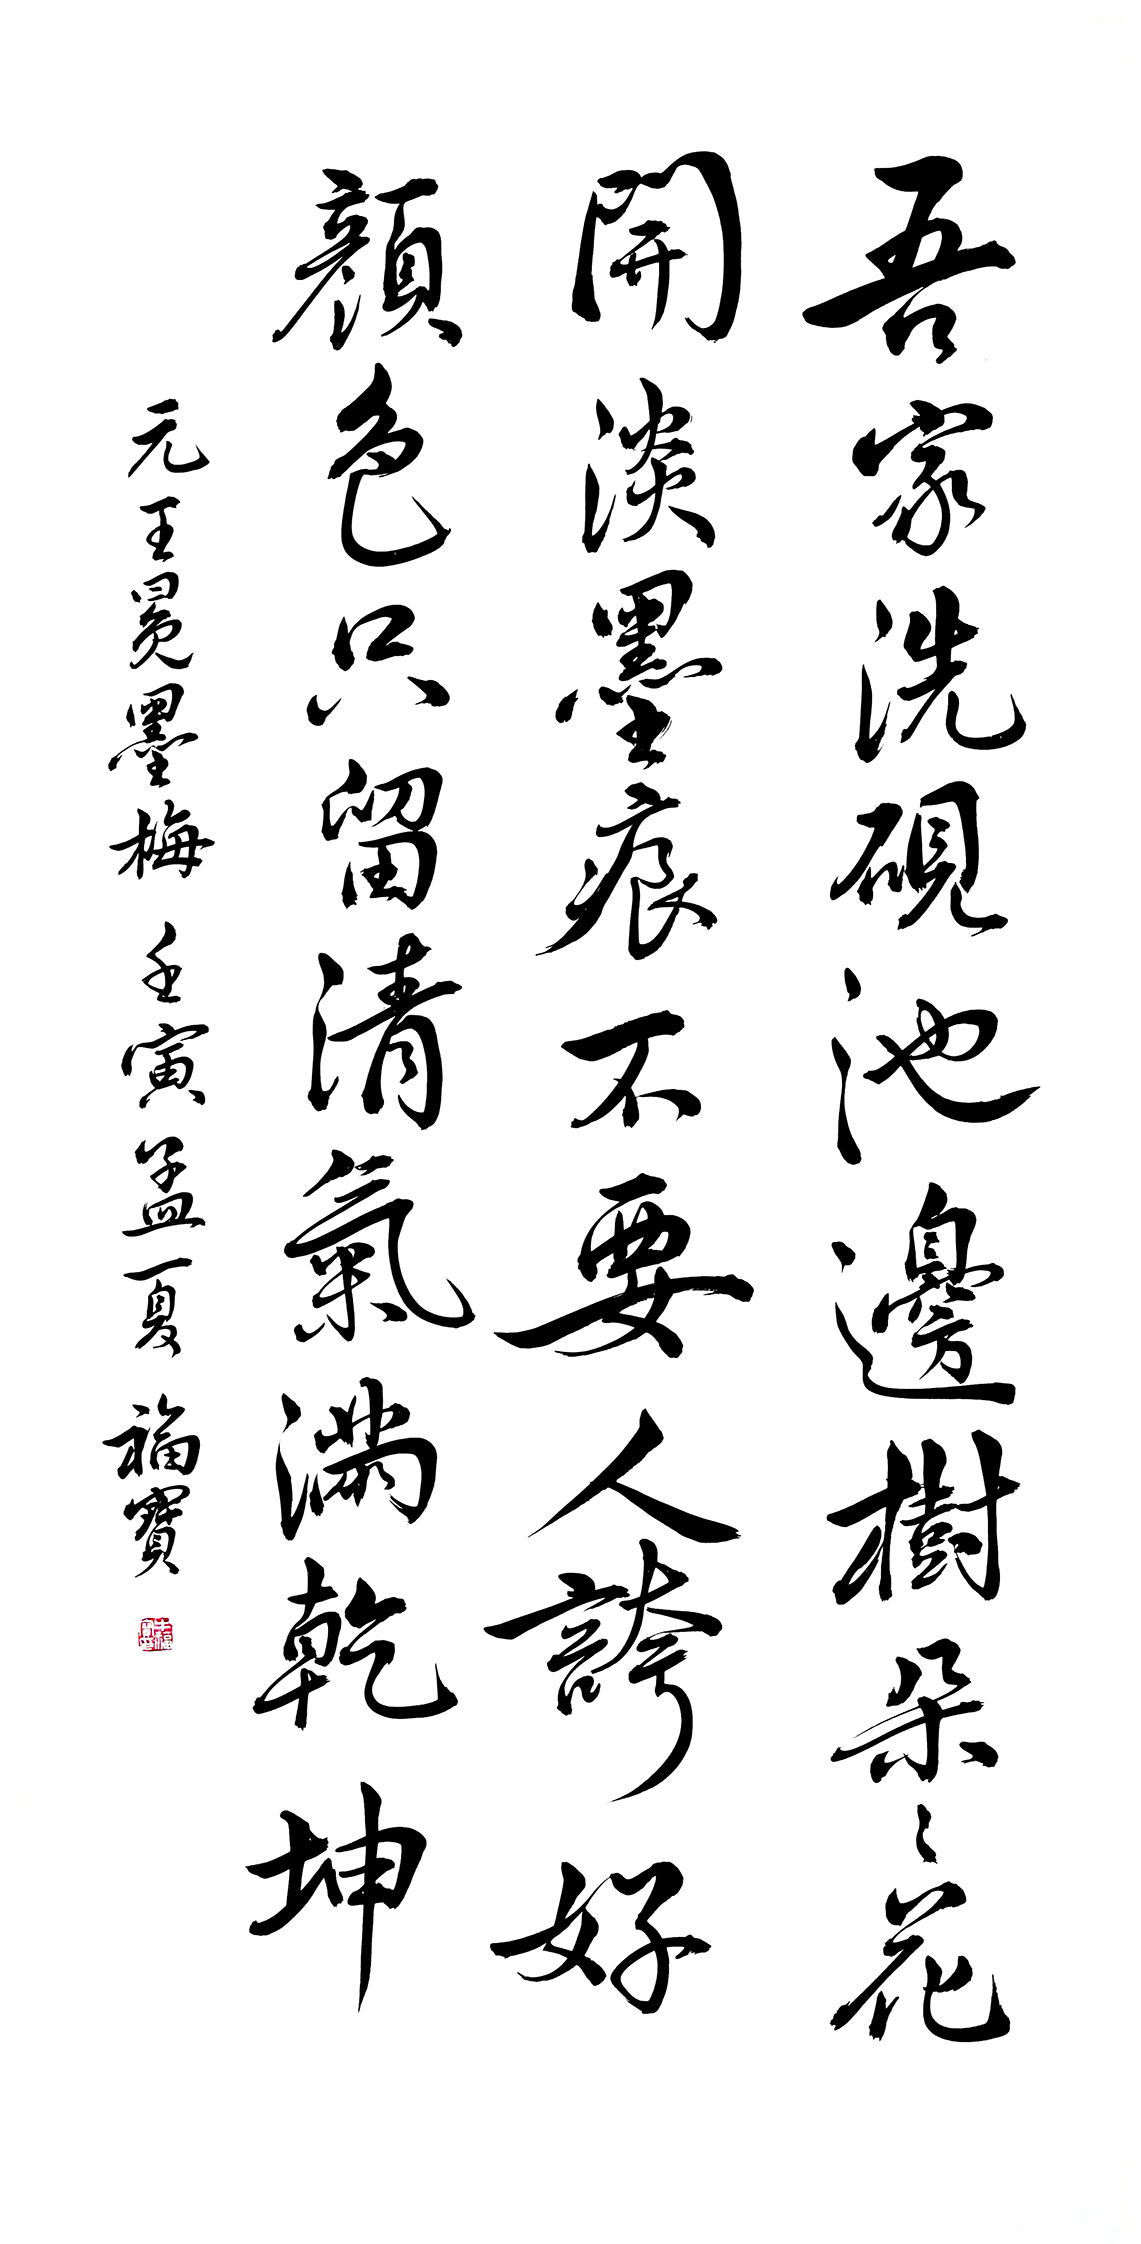 吾家洗硯池邊樹朵〻花
開淡墨痕不要人誇好
顏色只留清氣滿乾坤
元王冕墨梅 壬寅孟夏 福寶